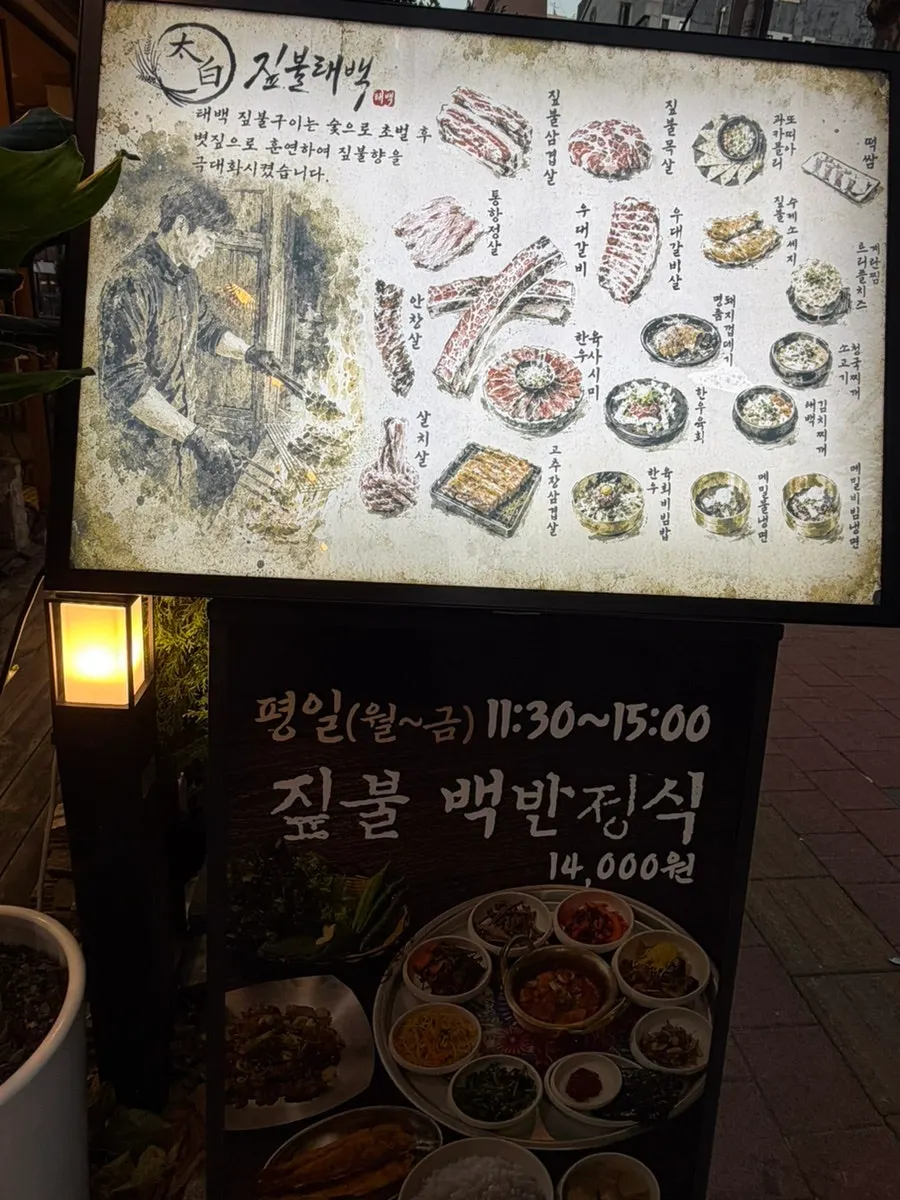 太白
짚불태백
태백
태백 짚불구이는 숯으로 초벌 후
볏짚으로 훈연하여 짚불향을
극대화시켰습니다.
짚불삼겹살
짚불목살
또띠아
과카몰리
떡쌈
통항정살
우대갈비
우대갈비살
수제소세지
짚불
계란찜
트러플치즈
안창살
한우
육사시미
돼지껍데기
명품
소고기
청국찌개
살치살
고추장삼겹살
한우육회
태백
김치찌개
한우
육회비빔밥
메밀물냉면
메밀비빔냉면
평일(월~금) 11:30~15:00
짚불 백반정식
14,000원